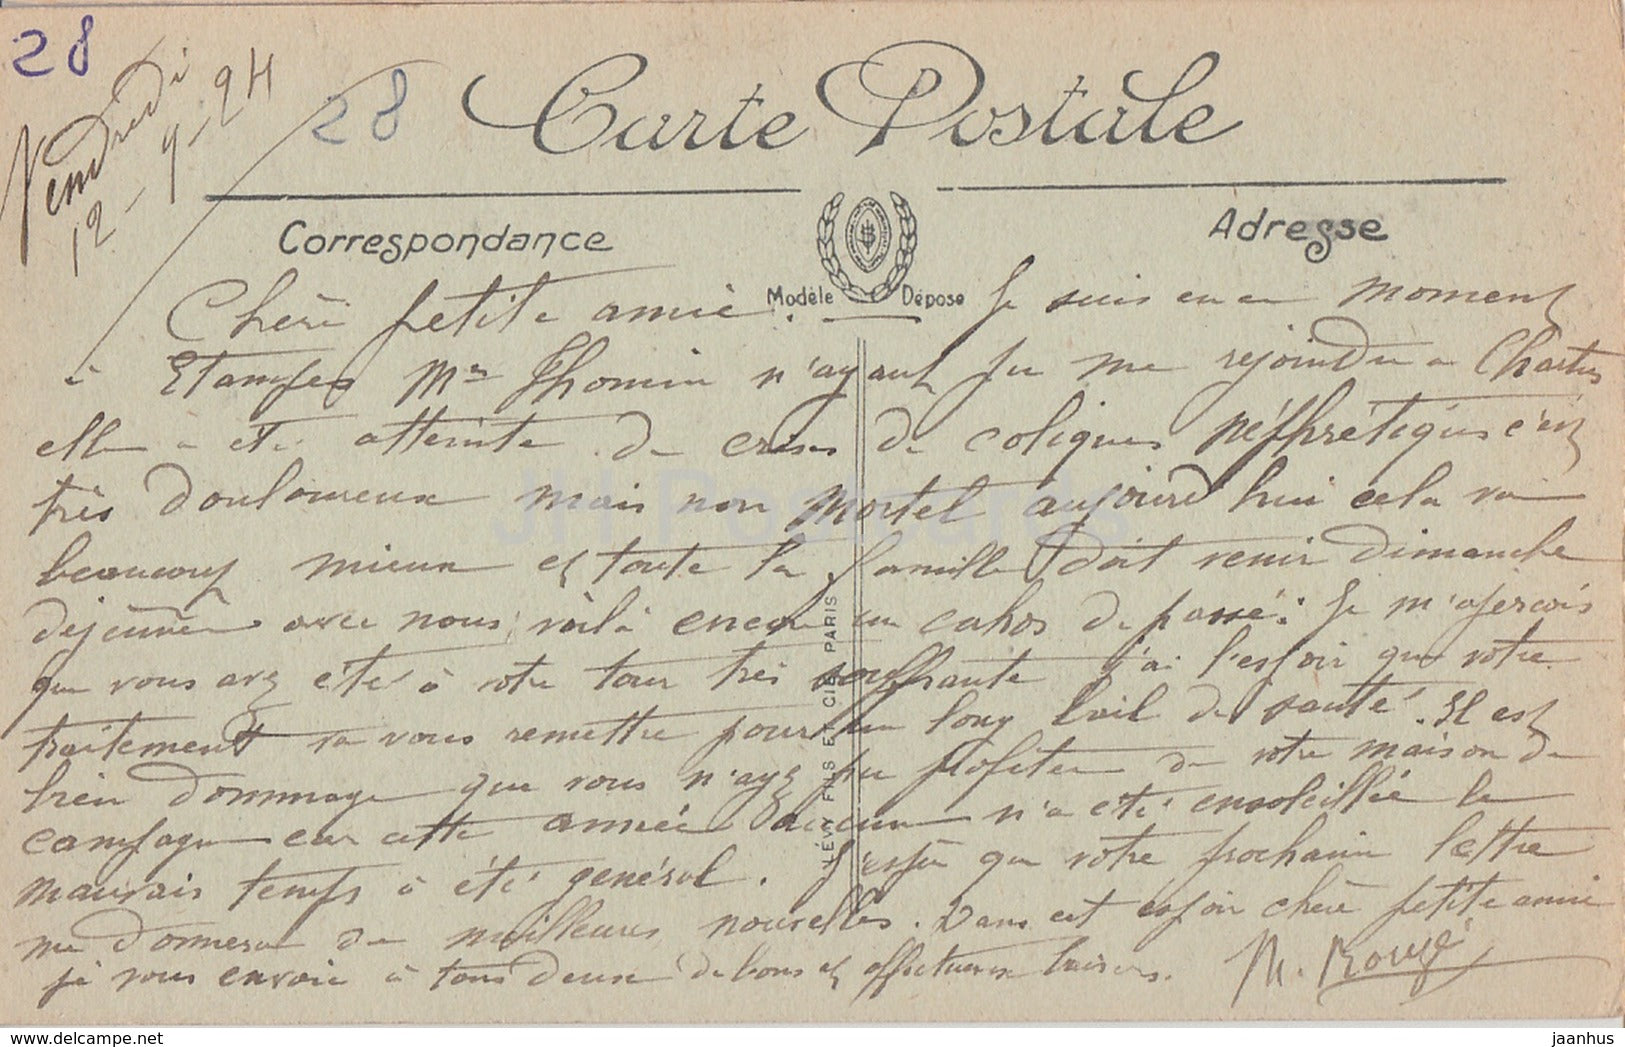 28
Vendredi
12-9-24
28
Carte Postale
Correspondance
Adresse
Modèle Déposé
Chère petite amie. Je suis en ce moment
à Etampes Mme Thomin n'ayant pu me rejoindre a Chartres
elle a été atteinte de crises de coliques néfhrétiques c'est
très douloureux mais non mortel aujourd'hui cela va
beaucoup mieux et toute la famille doit venir dimanche
déjeuner avec nous voilà encore un cahos de passé. Je m'aperçois
que vous avez été à votre tour très souffrante j'ai l'espoir que votre
traitement va vous remettre pour un long bail de santé. Il est
bien dommage que vous n'ayez pu profiter de votre maison de
campagne car cette année aucun n'a été ensoleillée le
mauvais temps à été général. J'espère que votre prochaine lettre
me donnera de meilleures nouvelles. Dans cet espoir chère petite amie
je vous envoie à tous deux de bons et affectueux baisers. M. Rougé
LÉVY FILS E CIE PARIS
JH Postcards
jaanhus